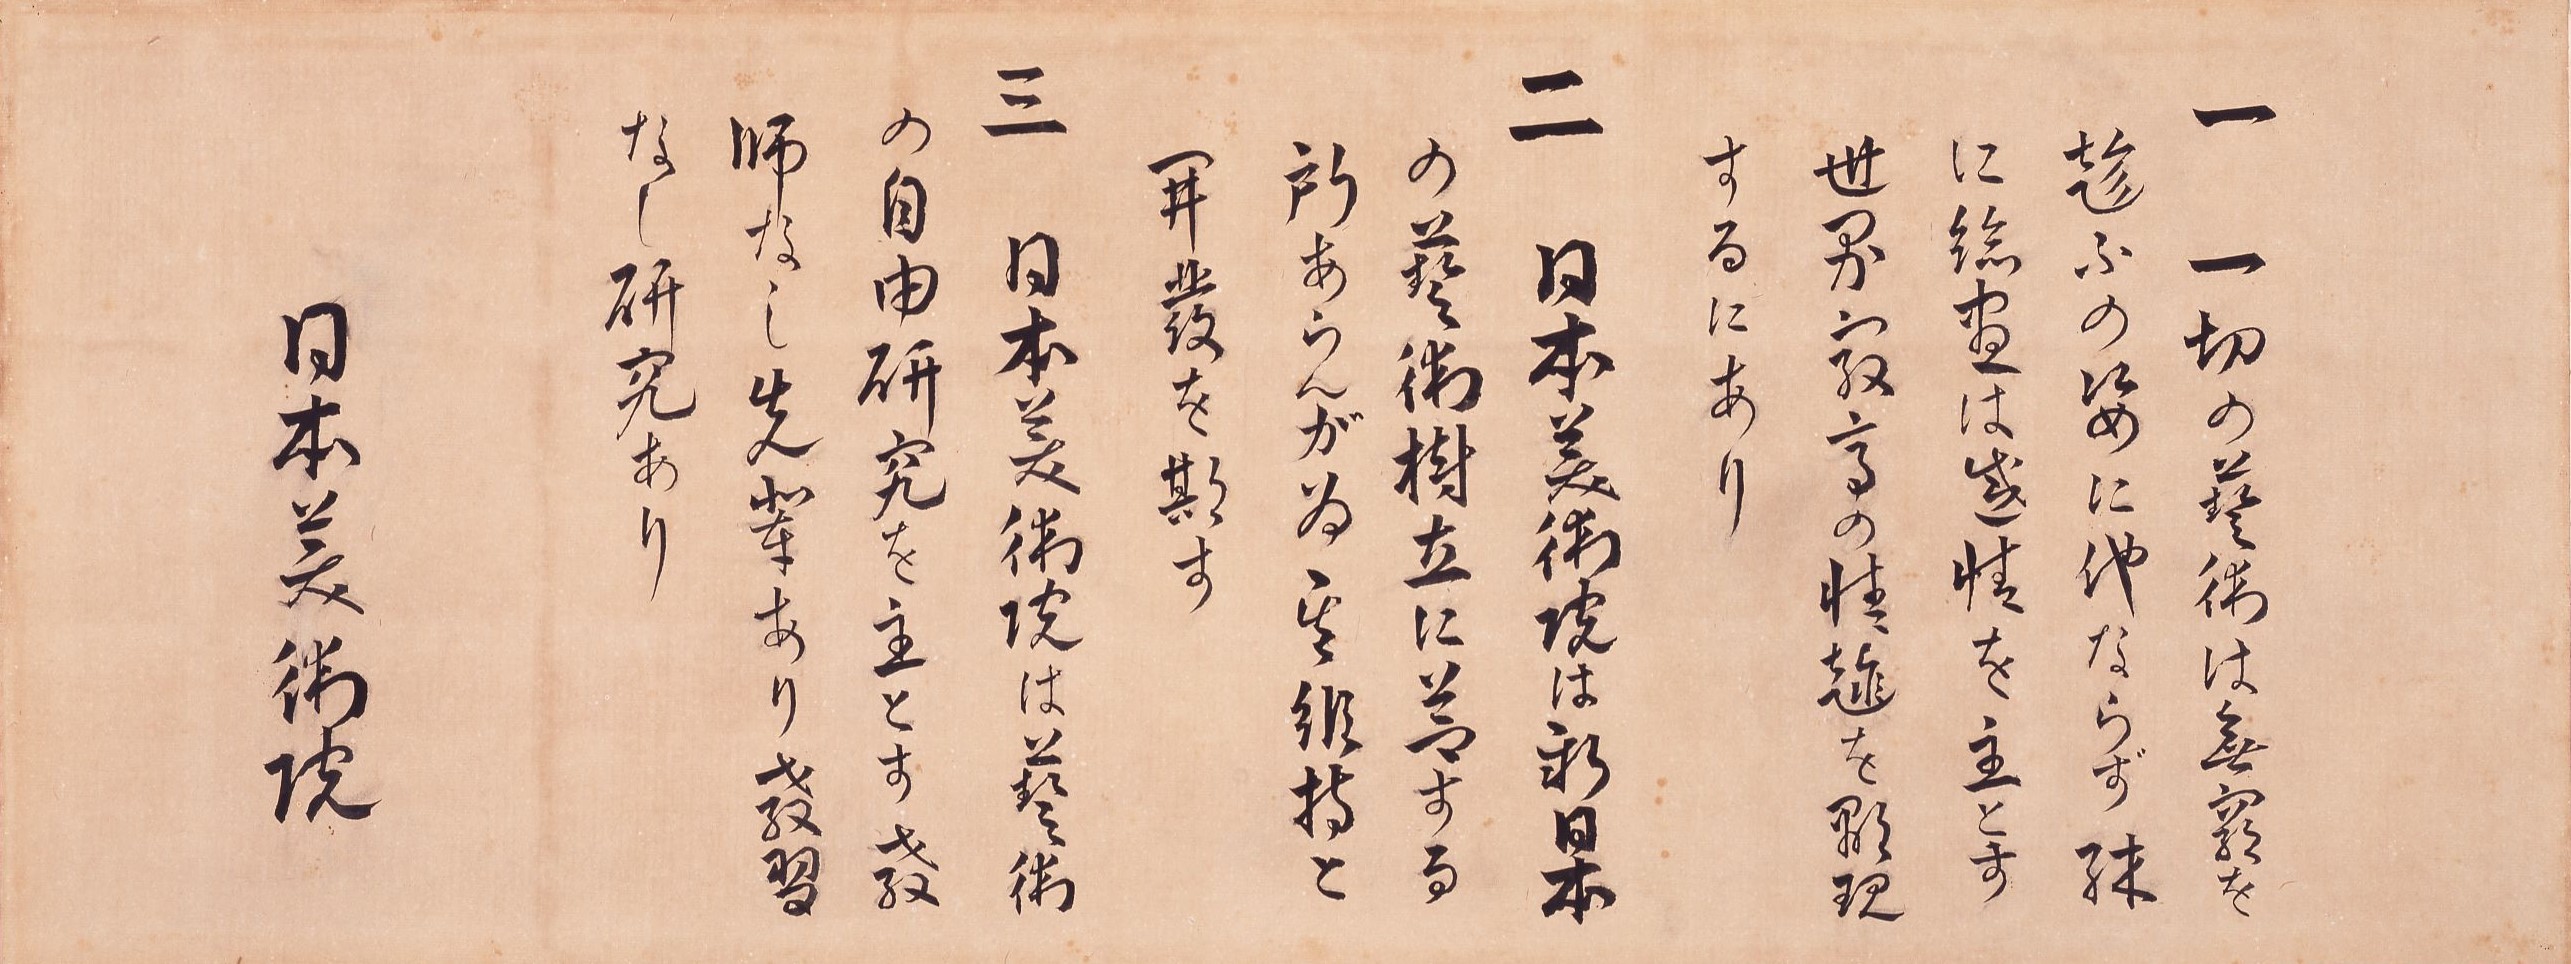 一 一切の藝術は無窮を
趁ふの姿に他ならず殊
に繪畫は感情を主とす
世界最高の情趣を顯現
するにあり
二 日本美術院は新日本
の藝術樹立に益する
所あらんが為其維持と
開發を期す
三 日本美術院は藝術
の自由研究を主とす教
師なし先輩あり教習
なし研究あり
日本美術院